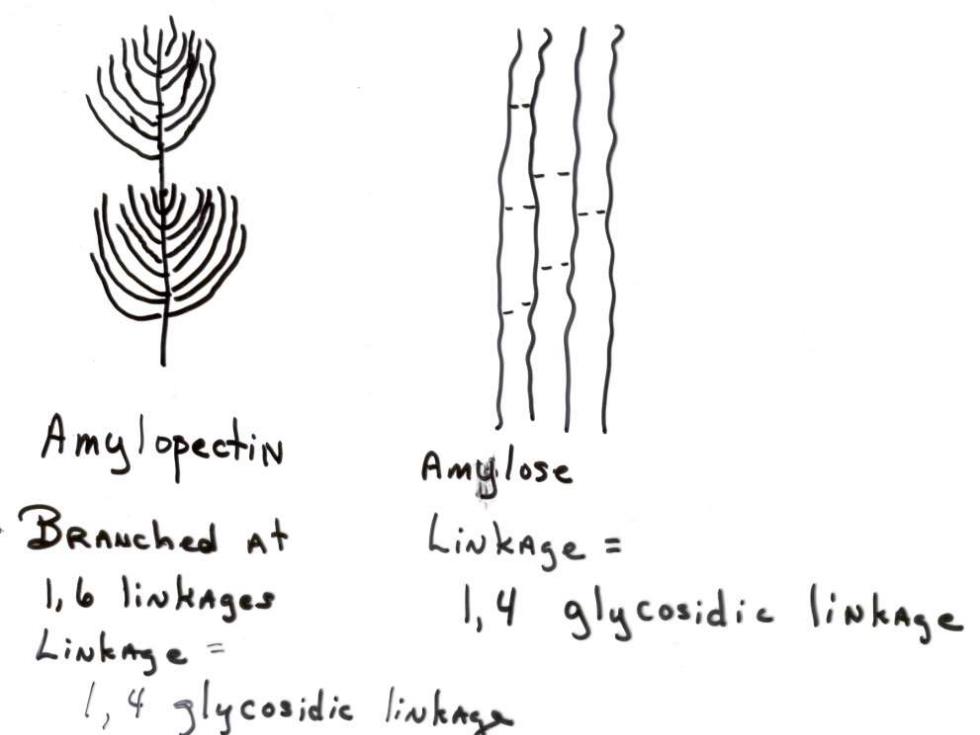 Amylopectin
Branched at
1,6 linkages
Linkage =
1,4 glycosidic linkage
Amylose
Linkage =
1,4 glycosidic linkage